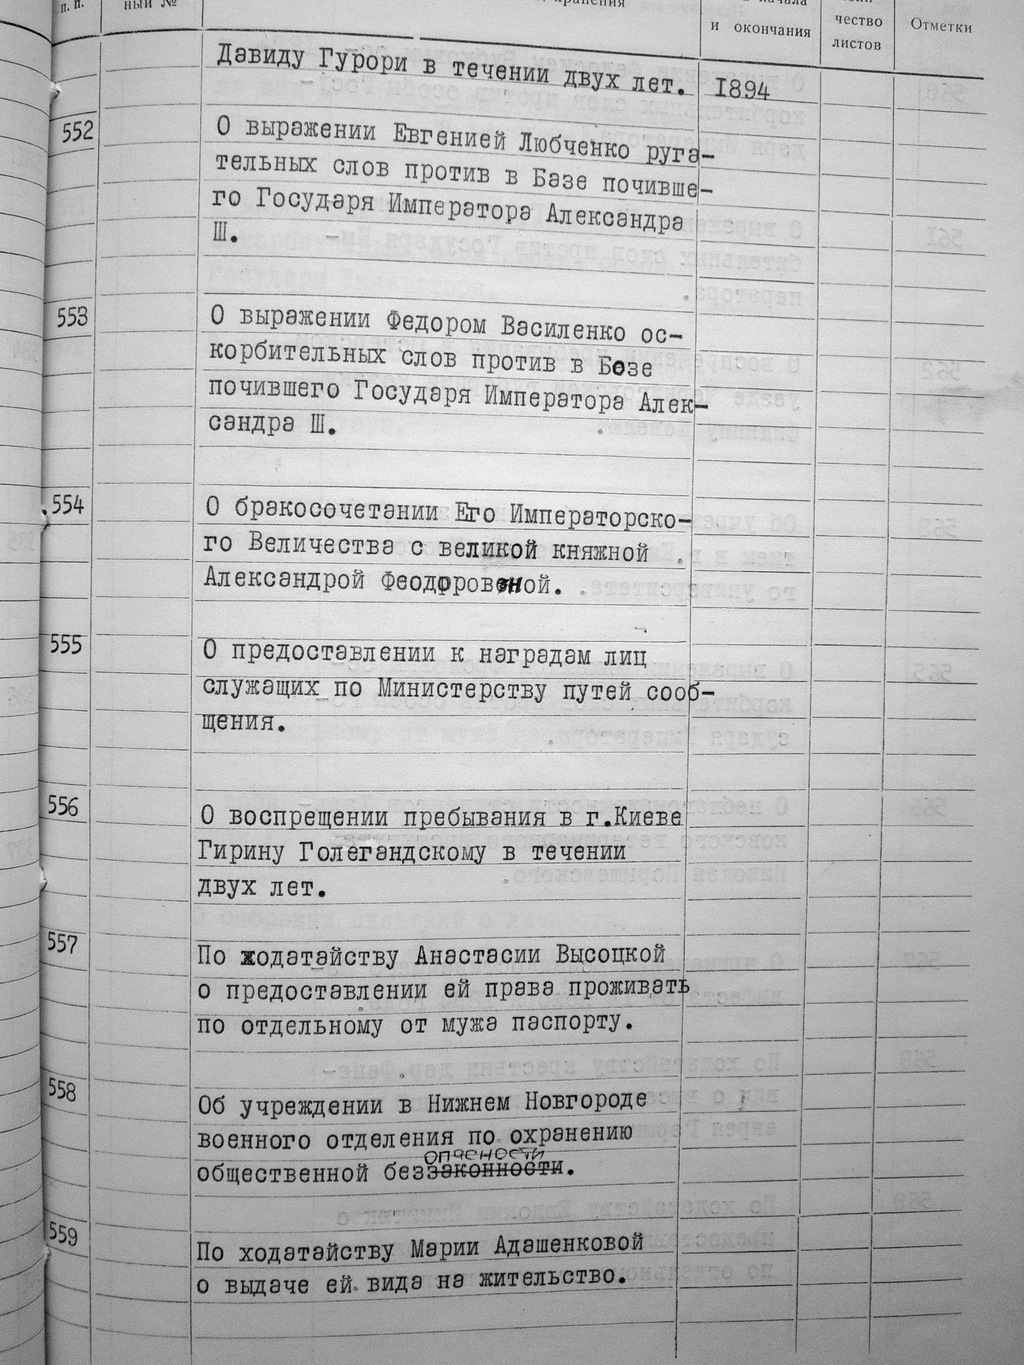 п. п.
ный №
хранения
начала
и окончания
чество
листов
Отметки
Давиду Гурори в течении двух лет. 1894
552
О выражении Евгенией Любченко руга-
тельных слов против в Базе почивше-
го Государя Императора Александра
Ш.
553
О выражении Федором Василенко ос-
корбительных слов против в Бозе
почившего Государя Императора Алек-
сандра Ш.
554
О бракосочетании Его Императорско-
го Величества с великой княжной
Александрой Феодоровной.
555
О предоставлении к наградам лиц
служащих по Министерству путей сооб-
щения.
556
О воспрещении пребывания в г.Киеве
Гирину Голегандскому в течении
двух лет.
557
По ходатайству Анастасии Высоцкой
о предоставлении ей права проживать
по отдельному от мужа паспорту.
558
Об учреждении в Нижнем Новгороде
военного отделения по охранению
опасности
общественной беззаконности.
559
По ходатайству Марии Адашенковой
о выдаче ей вида на жительство.